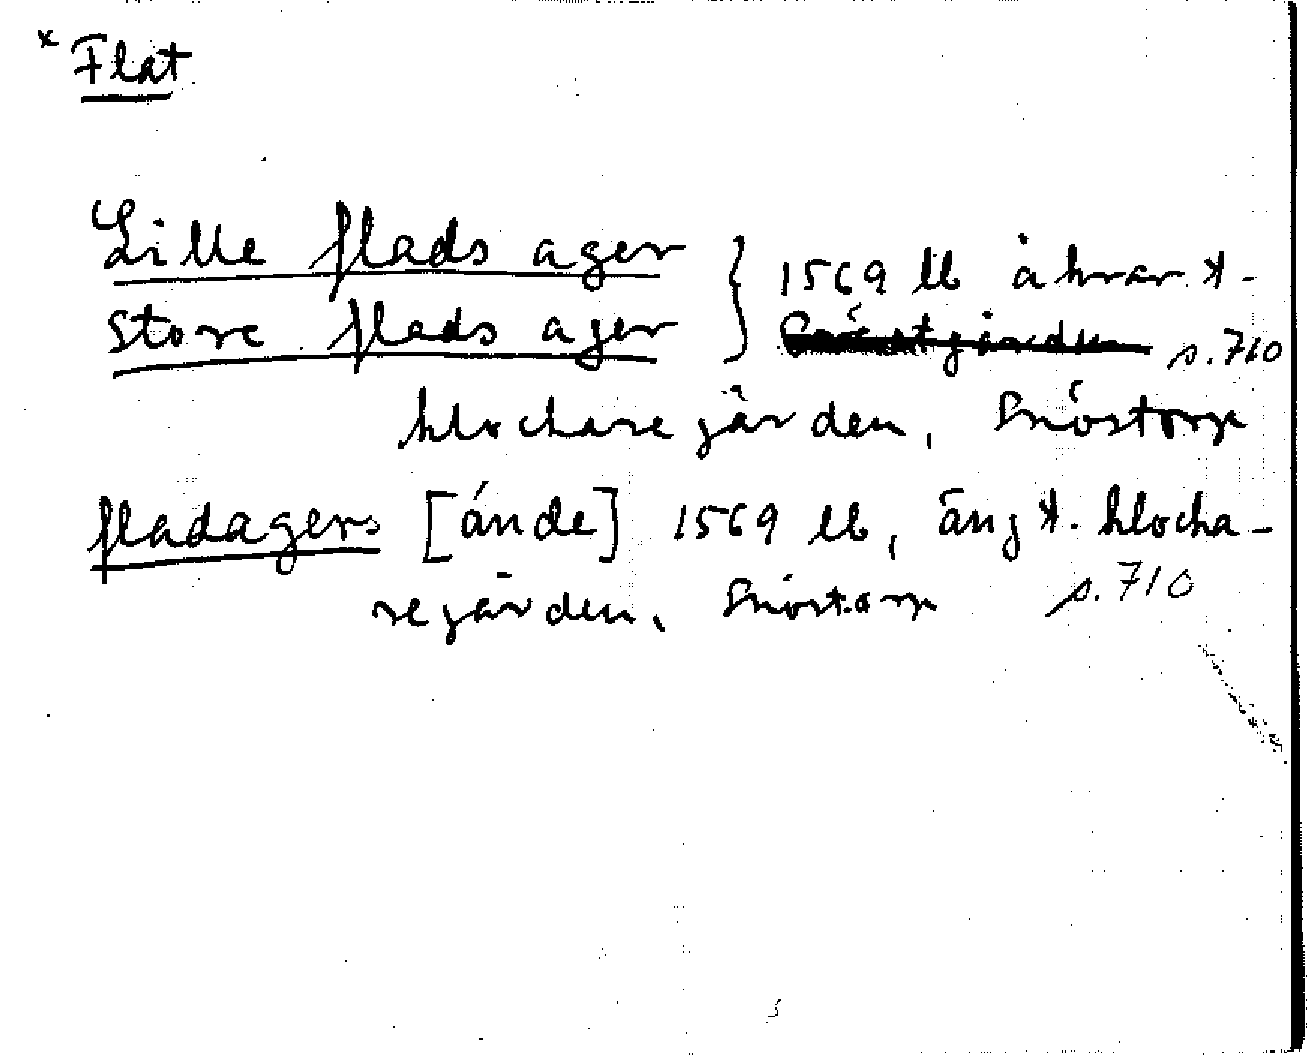 x Flat
Lille flads ager } 1569 lb åkrar t.
store flads ager s. 710
klockaregården, Snöstorp
fladagers [ánde] 1569 lb, äng t. klocka-
regården, Snöstorp s. 710